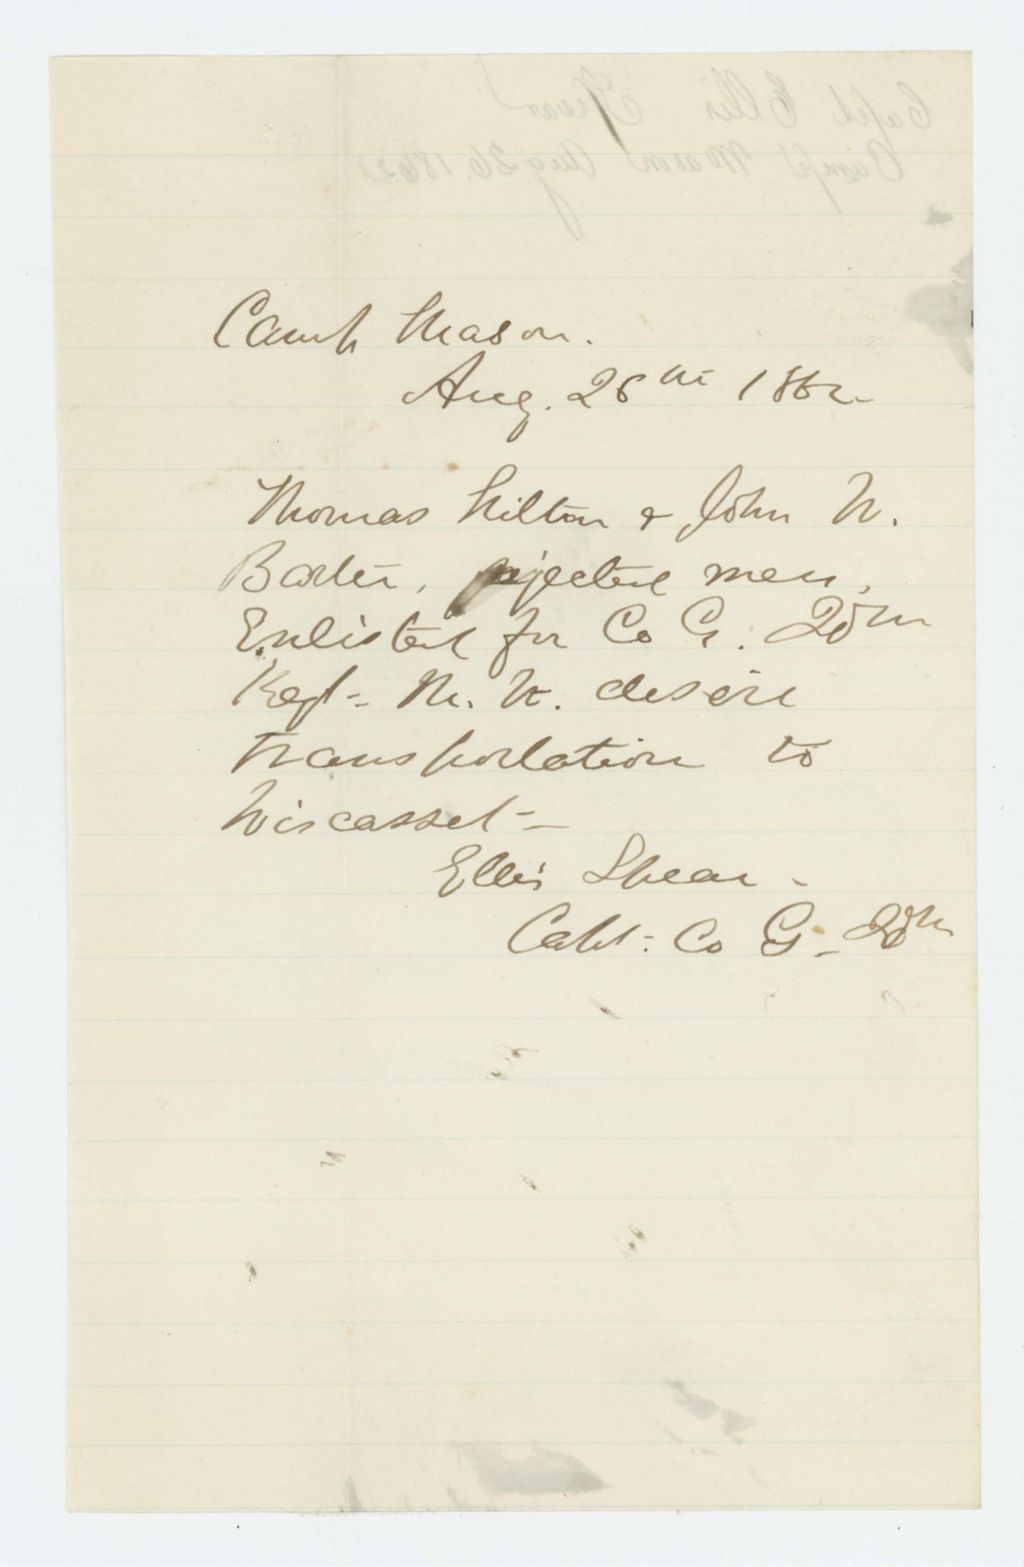 Camp Mason.
Aug. 26th 1862
Thomas Hilton & John W.
Baxter, rejected men,
Enlisted for Co G. 20th
Regt- M. V. desire
transportation to
Wiscasset-
Ellis Spear-
Capt- Co G- 20th
Capt Ellis Spear
Camp Mason Aug 26, 1862